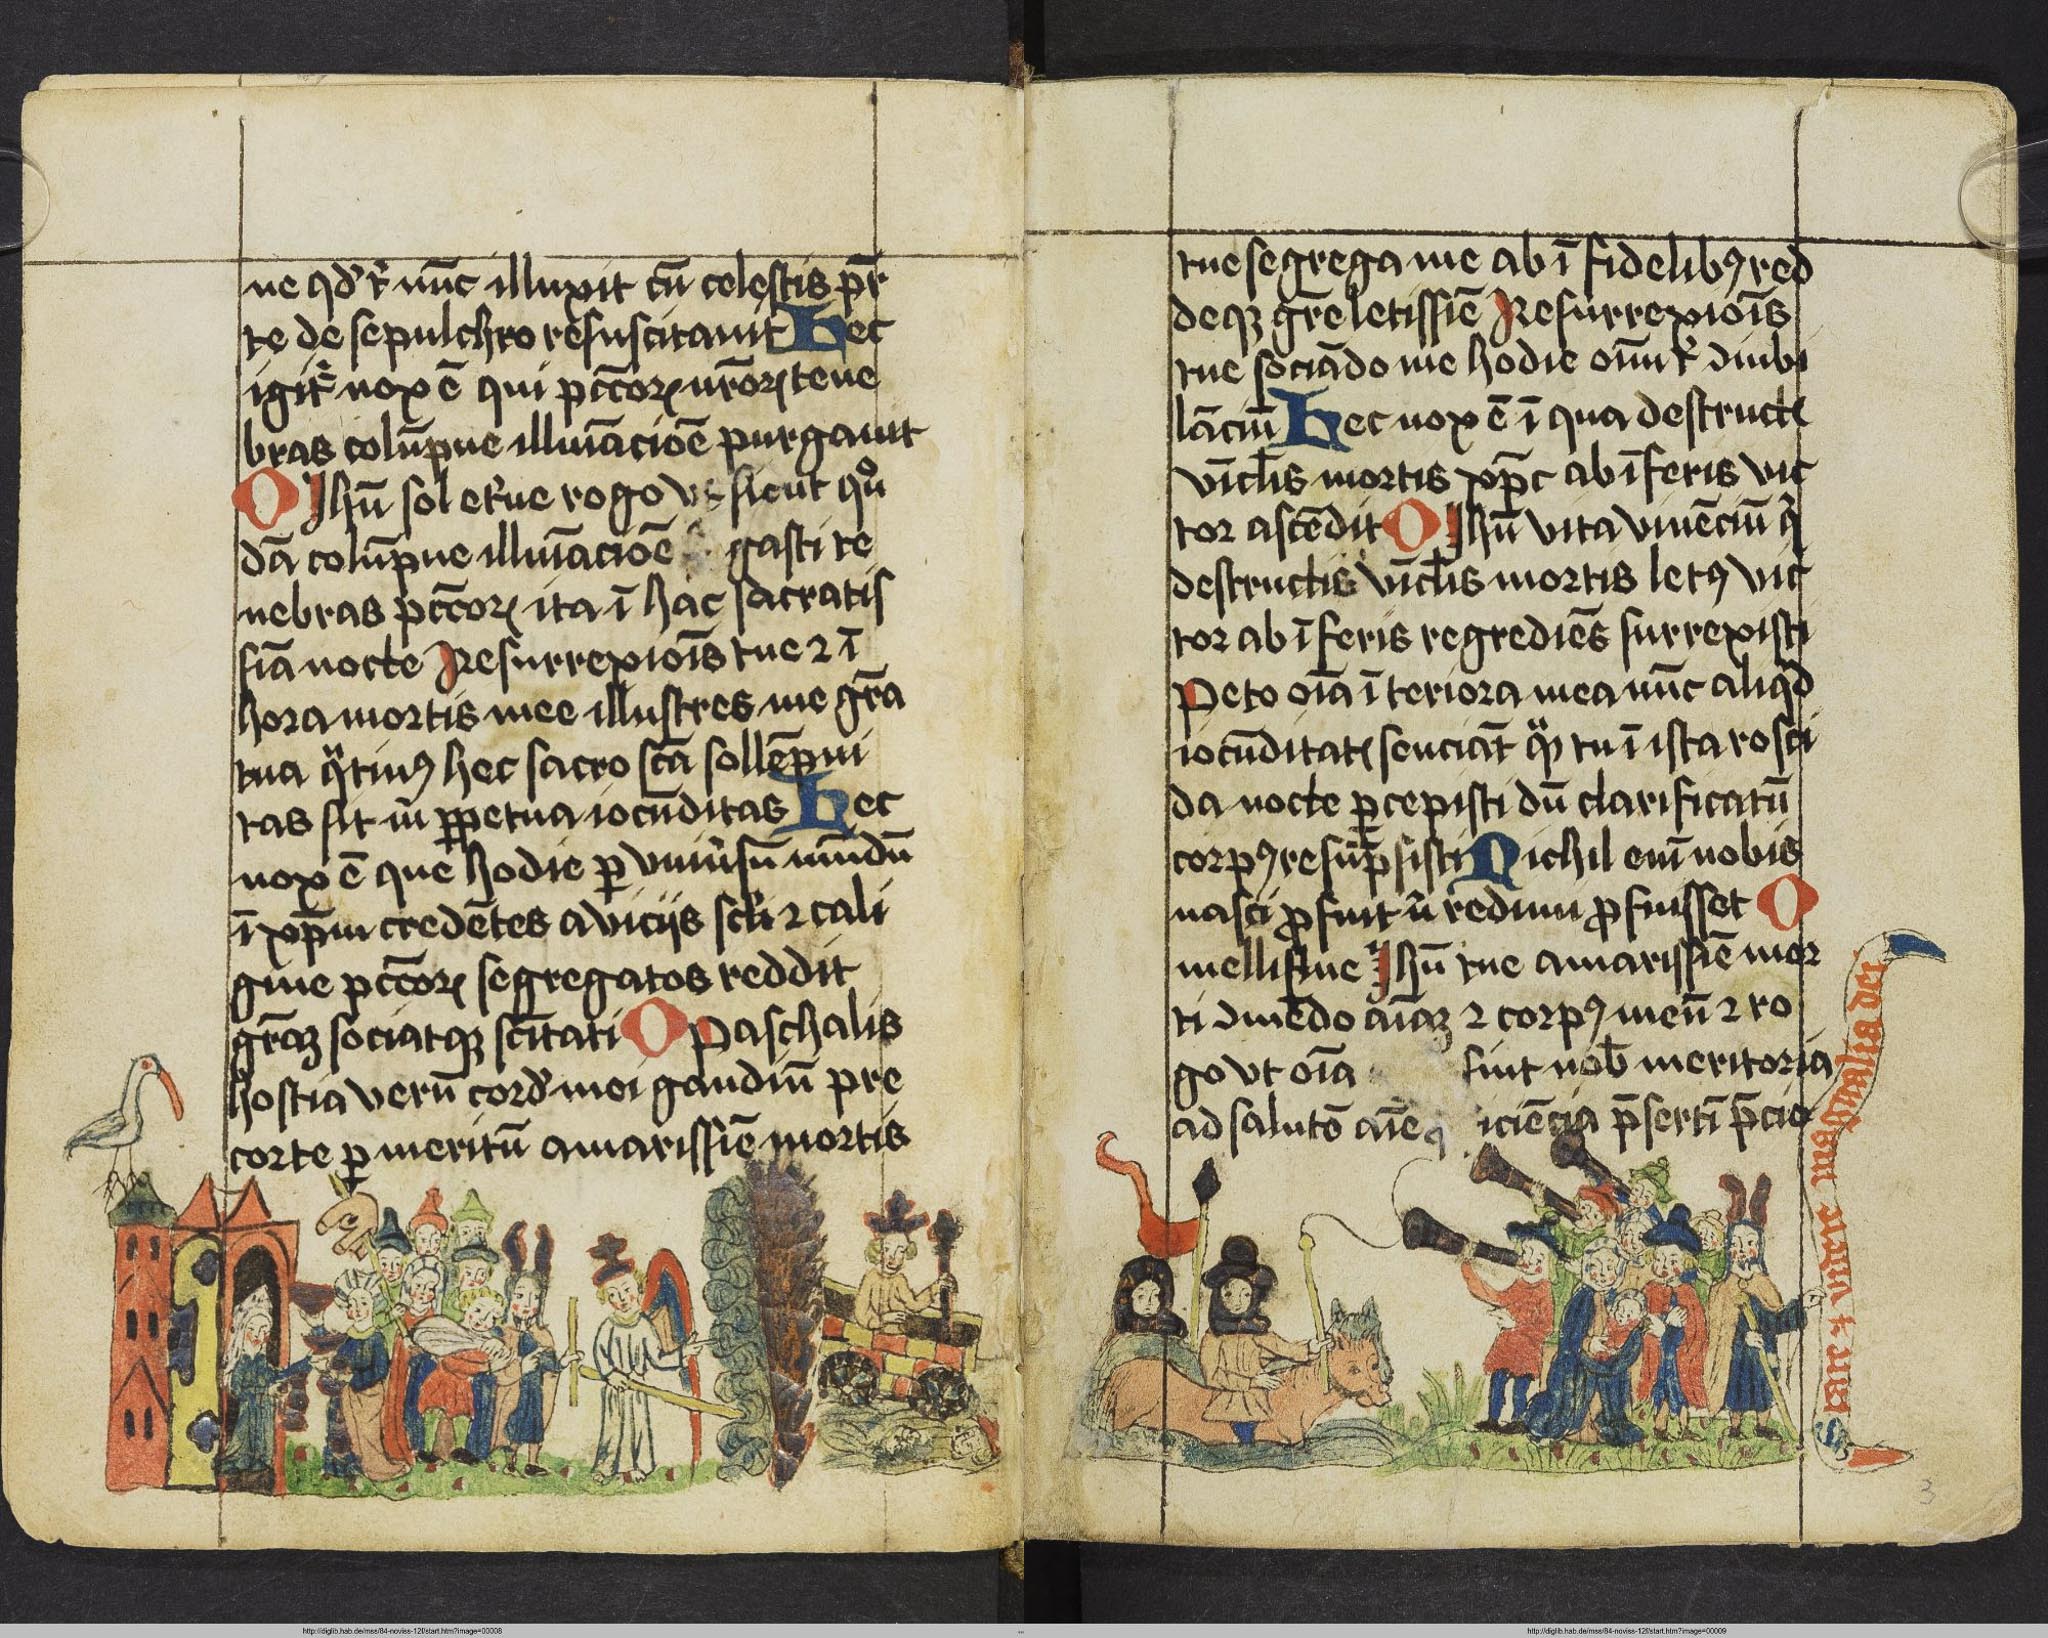 ne qd' r̄ nūc illuxit cū celestis pr̄
te de sepulchro resuscitauit Hec
igit᷑ nox ē qui pcc̄oꝝ nr̄oꝝ tene
bras colūpne illuīacioē purgauit
O Jhū sol et'ne rogo sicut
dā colūpne illuīacioē gasti te
nebras pcc̄oꝝ ita ī hac sacratis
siā nocte Resurrexioīs tue ⁊ ī
hora mortis mee illustres me gr̄a
tua hec sacro sctā sollēpni
tas sit m̄ ꝑpetua iocūditas Hec
nox ē que hodie ꝑ vniu'sū mūdū
ī xp̄m credētes a vicijs scl'i ⁊ cali
gine pcc̄oꝝ segregatos reddit
gr̄aꝫ sociatqꝫ sc̄titati O Paschalis
hostia verū cord' mei gaudiū pre
corte ꝑ meritū amarissiē mortis
tue segrega me ab ī fidelibꝰ red
deqꝫ gr̄e letissiē Resurrexioīs
tue sociādo me hodie oīnit᷑ diubi
lāciū Hec nox ē ī qua destructꝭ
vīcl'is mortis xp̄c ab īferis vic
tor ascēdit O Jhū vita viuēciū q'
destructis vīcl'is mortis letꝰ vic
tor ab īferis regrediēs surrexisti
Peto oīa īteriora mea nūc aliqd'
iocūditatꝭ senciāt tu ī ista rosci
da nocte ꝑcepisti dū clarificatū
corpꝰ resūp̄sisti Nichil eni̅ nobis
nasci ꝓfuit n̄ redimi ꝓfuisset O
melliflue Jhū tue amarissiē mor
ti ōmēdo aīaꝫ ⁊ corpꝰ meū ⁊ ro
go vt oīa sint nob̄ meritoria
ad salutē aīe iciēcia p̄sertī p̄cio
Sare ⁊ viderit magnalia dei
3
http://diglib.hab.de/mss/84-noviss-12f/start.htm?image=00008
http://diglib.hab.de/mss/84-noviss-12f/start.htm?image=00009